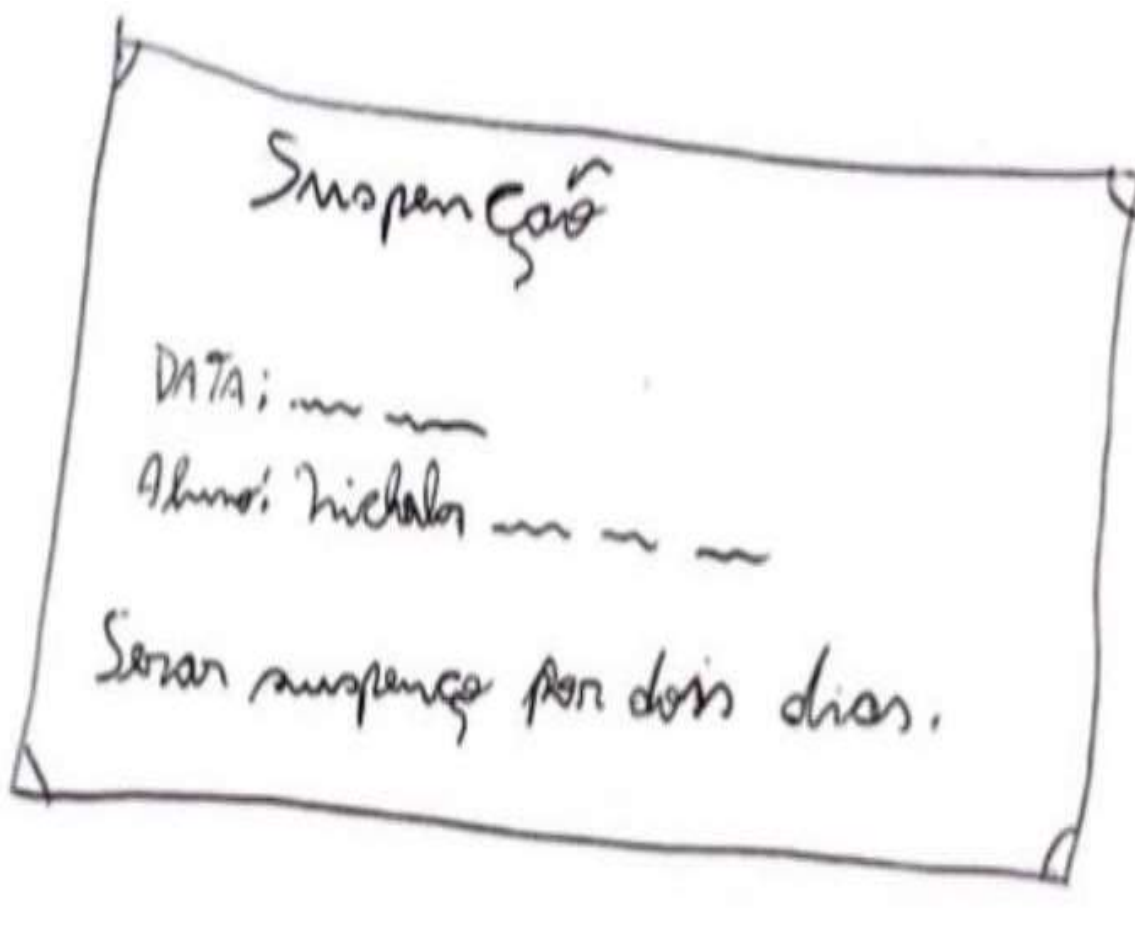 Suspenção
DATA:
Aluno: Nicholas
Serar suspenço por dois dias.